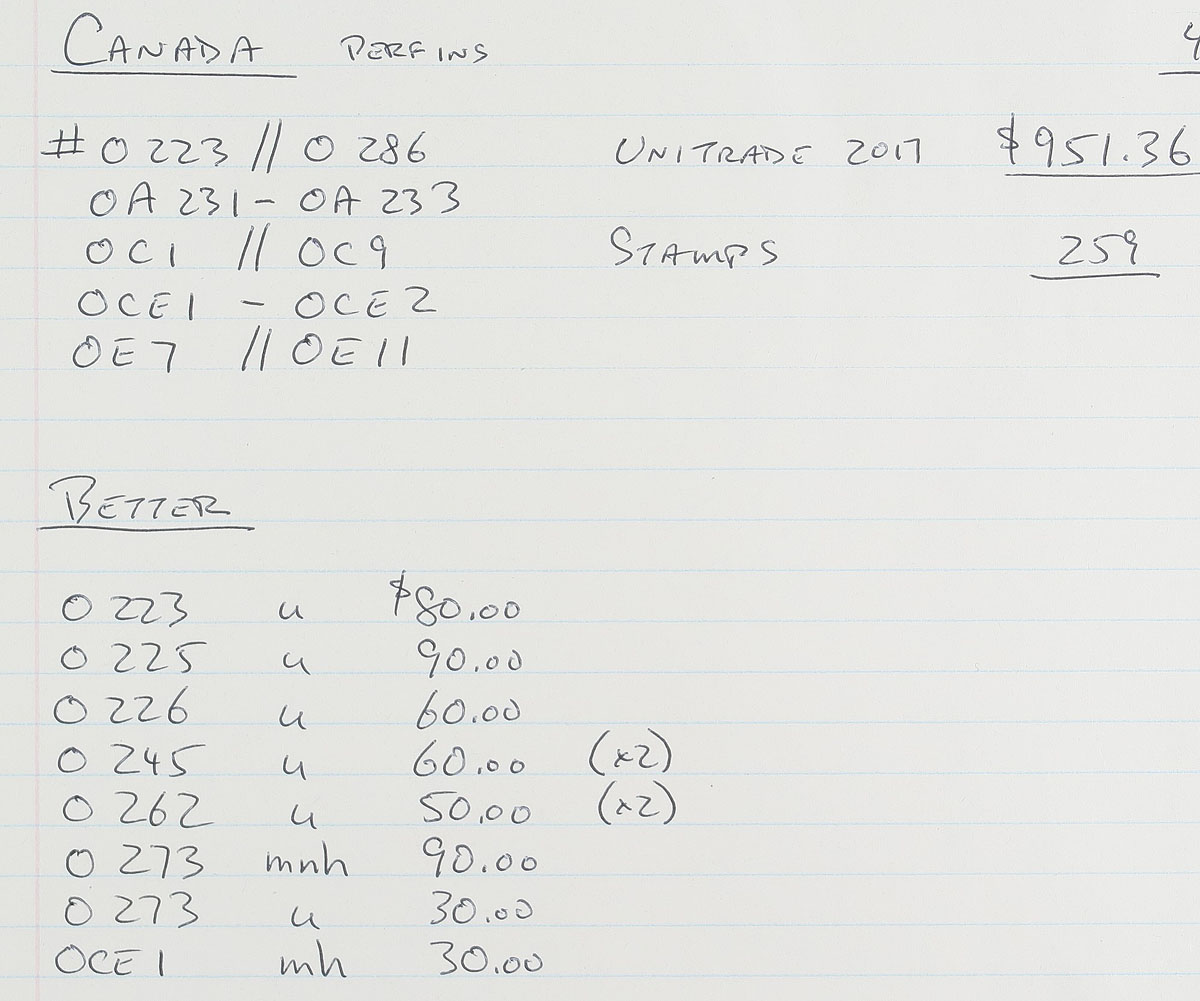 CANADA PERFINS 4
#O 223 // O 286 UNITRADE 2017 $951.36
OA 231 - OA 233
OC1 // OC9 STAMPS 259
OCE1 - OCE2
OE7 // OE11
BETTER
O 223 u $80.00
O 225 u 90.00
O 226 u 60.00
O 245 u 60.00 (x2)
O 262 u 50.00 (x2)
O 273 mnh 90.00
O 273 u 30.00
OCE1 mh 30.00